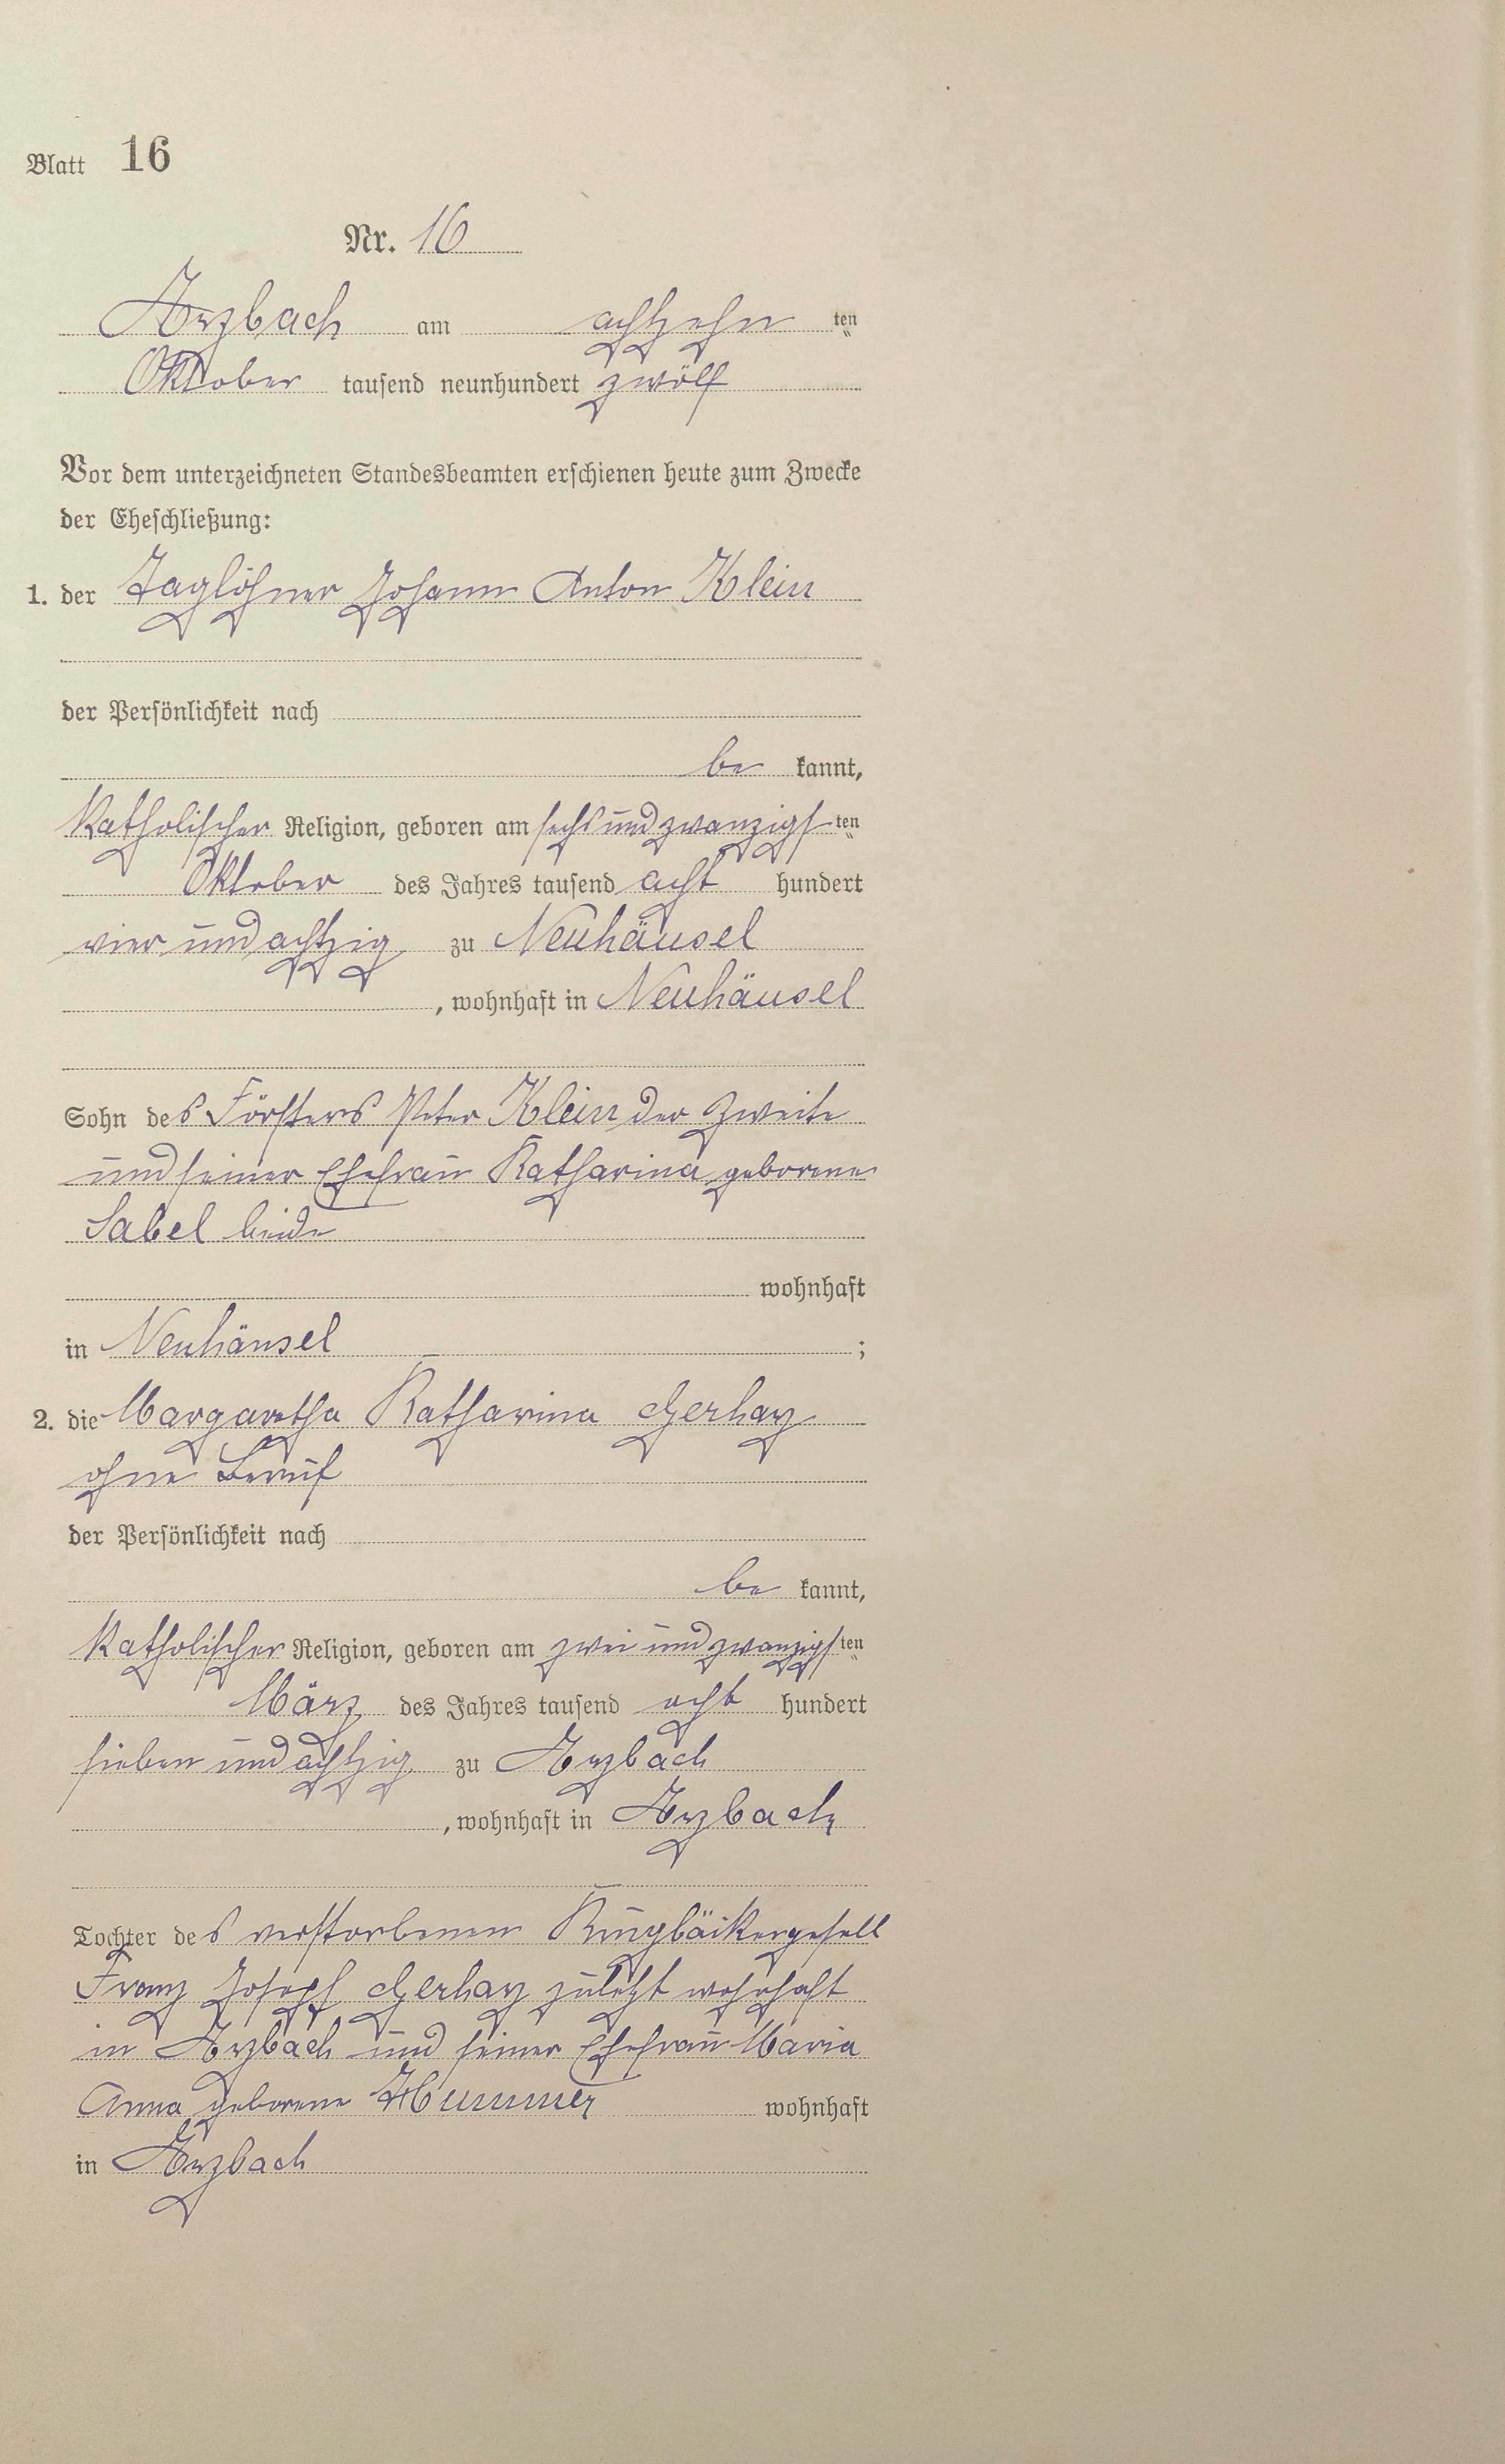 Blatt 16
Nr. 16
Arzbach am achtzehn ten
Oktober tausend neunhundert zwölf
Vor dem unterzeichneten Standesbeamten erschienen heute zum Zwecke
der Eheschließung:
1. der Taglöhner Johann Anton Klein
der Persönlichkeit nach
be kannt,
katholischer Religion, geboren am sechs und zwanzigs ten
Oktober des Jahres tausend acht hundert
vier und achtzig zu Neuhäusel
, wohnhaft in Neuhäusel
Sohn des Försters Peter Klein der Zweite
und seiner Ehefrau Katharina geborene
Sabel beide
wohnhaft
in Neuhäusel ;
2. die Margaretha Katharina Gerharz
ohne Beruf
der Persönlichkeit nach
be kannt,
katholischer Religion, geboren am zwei und zwanzigs ten
März des Jahres tausend acht hundert
sieben und achtzig zu Arzbach
, wohnhaft in Arzbach
Tochter des verstorbenen
Franz Joseph Gerharz zuletzt wohnhaft
in Arzbach und seiner Ehefrau Maria
Anna geborene Hummer wohnhaft
in Arzbach